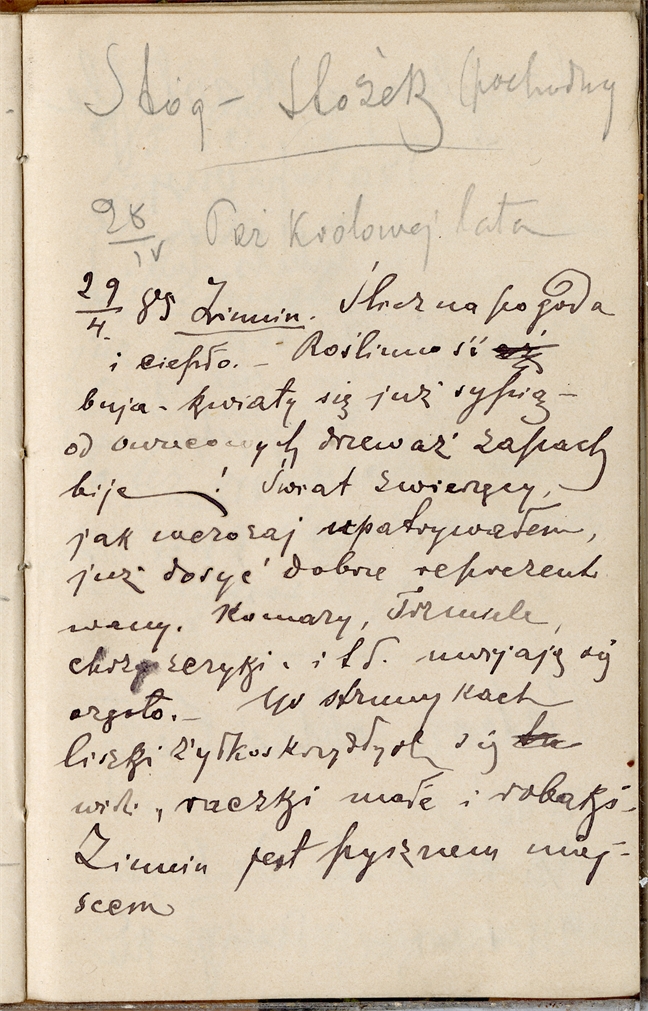 Stóg – Stożek (pochodny
28/IV Paź Królowej lata
29/4. 89 Zimin. Śliczna pogoda
i ciepło. – Roślinność
buja – kwiaty się już sypią –
od owocowych drzew aż zapach
bije! Świat zwierzęcy,
jak wczoraj upatrywałem,
już dosyć dobrze reprezento
wany. Komary, Trzmiele,
chrząszczyki. i t d. uwijają się
ogoto. – W strumykach
liszki żyłkoskrzydłych się
widi, raczki małe i robaki.
Zimin jest pysznem miej-
scem